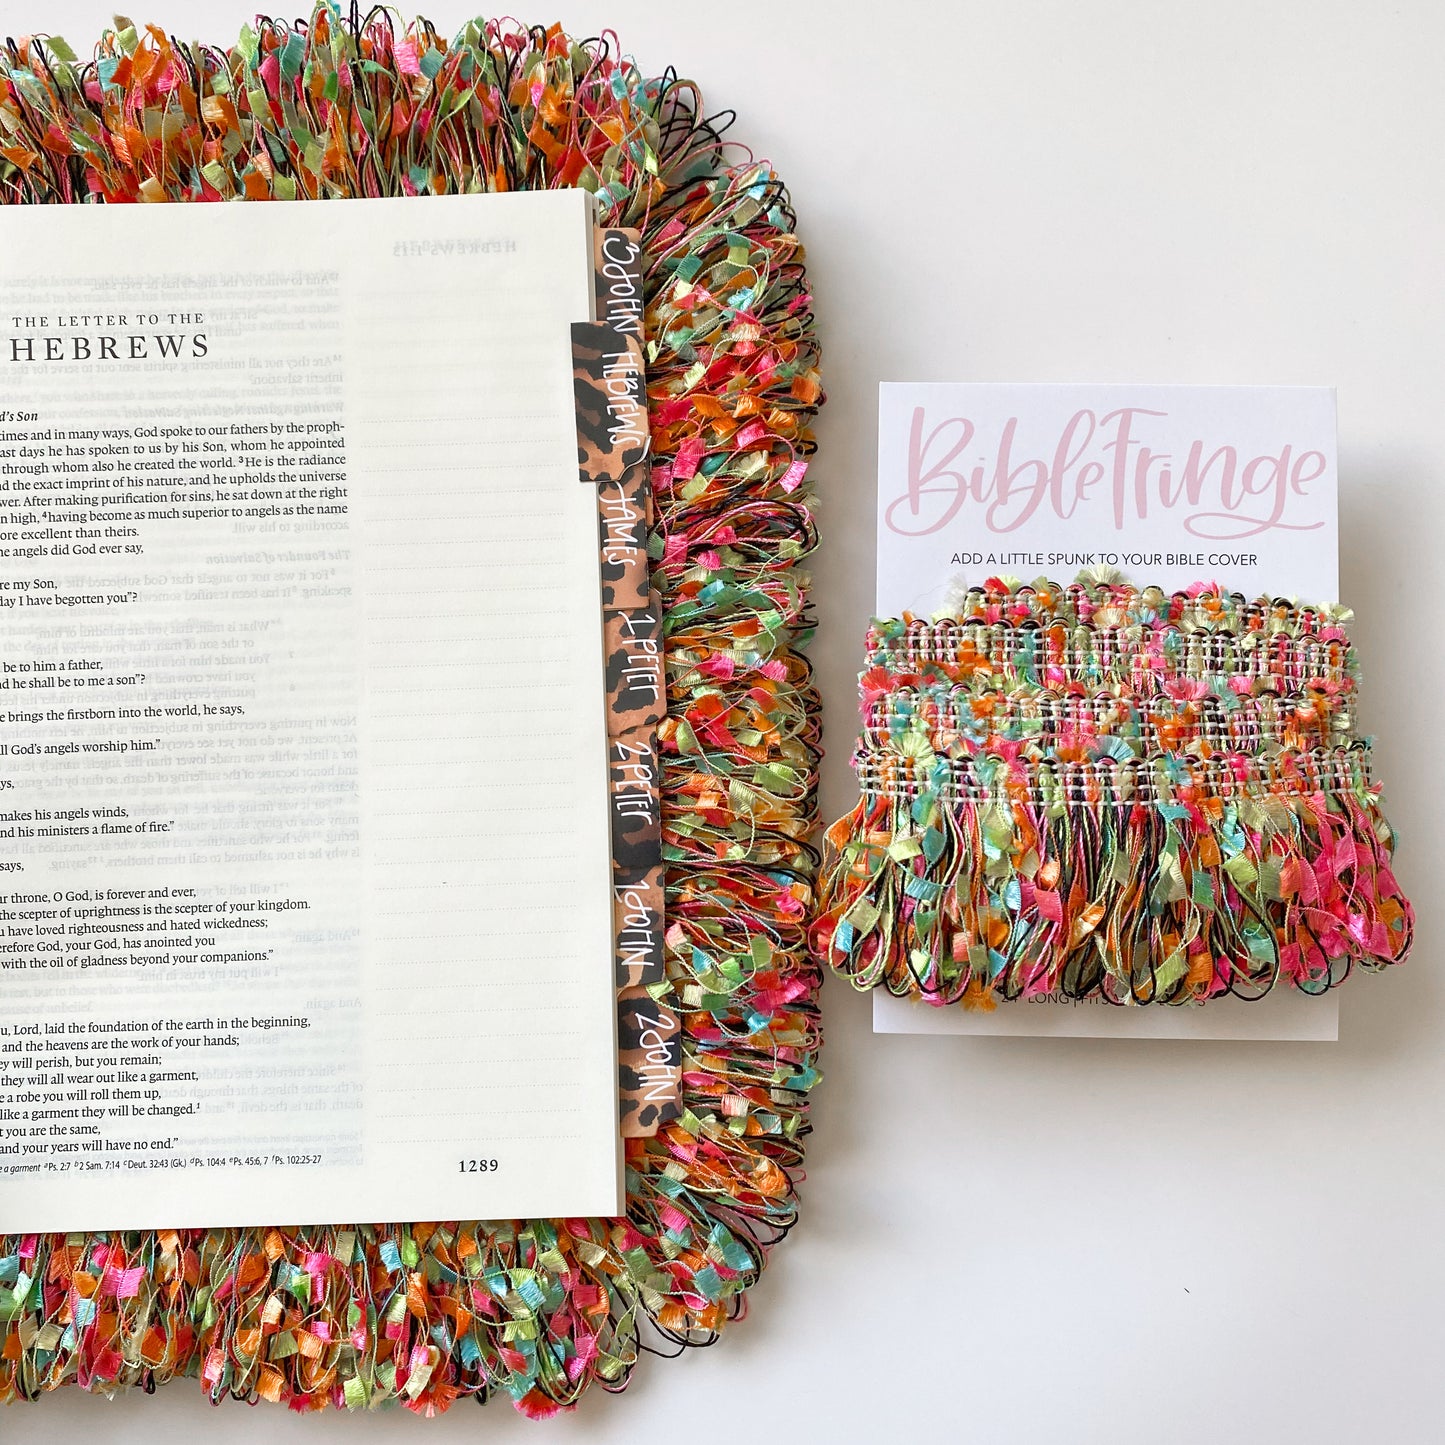 THE LETTER TO THE
HEBREWS
d's Son
times and in many ways, God spoke to our fathers by the proph-
ast days he has spoken to us by his Son, whom he appointed
through whom also he created the world. ³He is the radiance
d the exact imprint of his nature, and he upholds the universe
wer. After making purification for sins, he sat down at the right
n high, ⁴having become as much superior to angels as the name
ore excellent than theirs.
he angels did God ever say,
re my Son,
day I have begotten you”?
be to him a father,
d he shall be to me a son”?
e brings the firstborn into the world, he says,
ll God’s angels worship him.”
ys,
makes his angels winds,
nd his ministers a flame of fire.”
says,
ur throne, O God, is forever and ever,
the scepter of uprightness is the scepter of your kingdom.
u have loved righteousness and hated wickedness;
erefore God, your God, has anointed you
with the oil of gladness beyond your companions.”
u, Lord, laid the foundation of the earth in the beginning,
and the heavens are the work of your hands;
ey will perish, but you remain;
they will all wear out like a garment,
e a robe you will roll them up,
like a garment they will be changed.¹
t you are the same,
and your years will have no end.”
e a garment ᵃPs. 2:7 ᵇ2 Sam. 7:14 ᶜDeut. 32:43 (Gk.) ᵈPs. 104:4 ᵉPs. 45:6, 7 ᶠPs. 102:25-27
1289
3JOHN
HEBREWS
JAMES
1 PETER
2 PETER
1JOHN
2JOHN
BibleFringe
ADD A LITTLE SPUNK TO YOUR BIBLE COVER
LONG